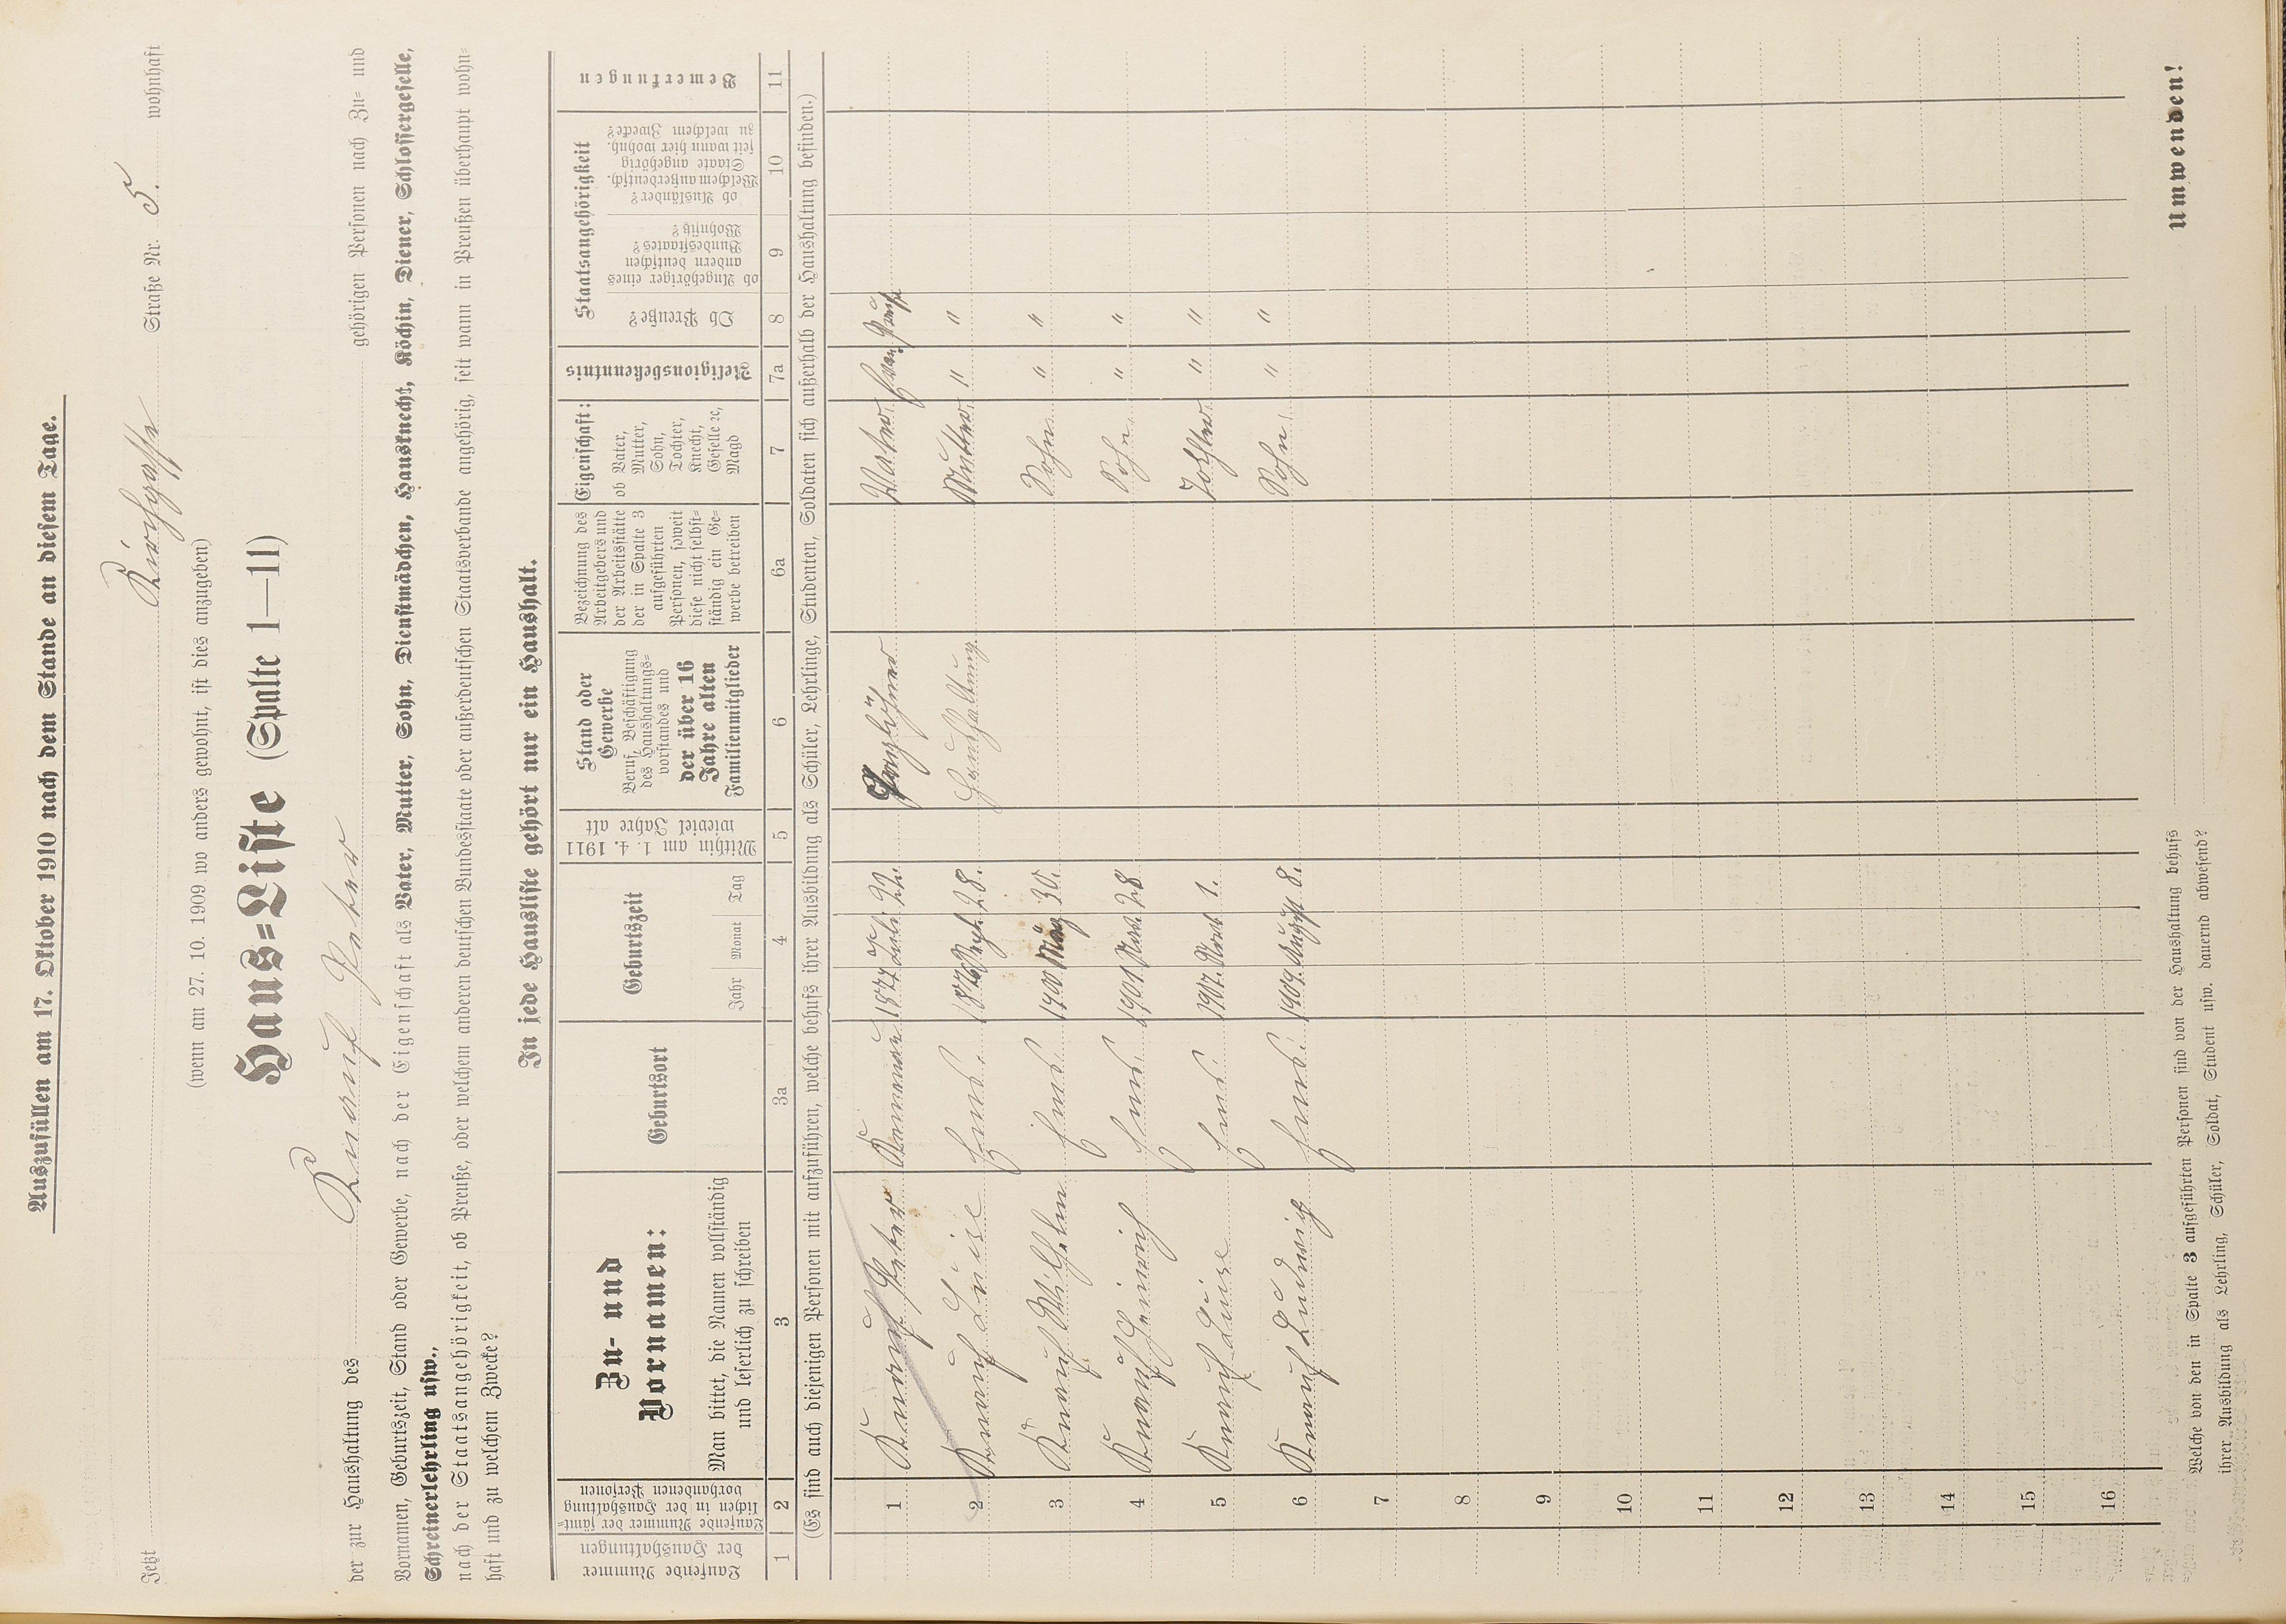 Auszufüllen am 17. Oktober 1910 nach dem Stande an diesem Tage.
Jetzt Kirchgasse Straße Nr. 5. wohnhaft
(wenn am 27. 10. 1909 wo anders gewohnt, ist dies anzugeben)
Haus=Liste (Spalte 1—11)
der zur Haushaltung des Knauf Peter gehörigen Personen nach Zu= und
Vornamen, Geburtszeit, Stand oder Gewerbe, nach der Eigenschaft als Vater, Mutter, Sohn, Dienstmädchen, Hausknecht, Köchin, Diener, Schlossergeselle,
Schreinerlehrling usw.,
nach der Staatsangehörigkeit, ob Preuße, oder welchem anderen deutschen Bundesstaate oder außerdeutschen Staatsverbande angehörig, seit wann in Preußen überhaupt wohn=
haft und zu welchem Zwecke?
In jede Hausliste gehört nur ein Haushalt.
Laufende Nummer
der Haushaltungen
Laufende Nummer der sämt=
lichen in der Haushaltung
vorhandenen Personen
Zu- und
Vornamen:
Man bittet, die Namen vollständig
und leserlich zu schreiben
Geburtsort
Geburtszeit
Jahr Monat Tag
Mithin am 1. 4. 1911
wieviel Jahre alt
Stand oder
Gewerbe
Beruf, Beschäftigung
des Haushaltungs=
vorstandes und
der über 16
Jahre alten
Familienmitglieder
Bezeichnung des
Arbeitgebers und
der Arbeitsstätte
der in Spalte 3
aufgeführten
Personen, soweit
diese nicht selbst=
ständig ein Ge=
werbe betreiben
Eigenschaft:
ob Vater,
Mutter,
Sohn,
Tochter,
Knecht,
Geselle ꝛc,
Magd
Religionsbekenntnis
Staatsangehörigkeit
Ob Preuße?
ob Angehöriger eines
andern deutschen
Bundesstaates?
Wohnsitz?
ob Ausländer?
Welchem außerdeutsch.
Staate angehörig
seit wann hier wohnh.
zu welchem Zwecke?
Bemerkungen
1 2 3 3a 4 5 6 6a 7 7a 8 9 10 11
(Es sind auch diejenigen Personen mit aufzuführen, welche behufs ihrer Ausbildung als Schüler, Lehrlinge, Studenten, Soldaten sich außerhalb der Haushaltung befinden.)
1 Knauf Peter 1877 22. Taglöhner Vater Evang. Preuße
2 Knauf Luise Ems. 1876 Sept. 28. Haushaltung Mutter " "
3 Knauf Wilhelm Ems 1900 März 30. Sohn " "
4 Knauf Heinrich Ems 1901 Nov. 28 Sohn " "
5 Knauf Luise Ems 1907. Novb. 1. Tochter " "
6 Knauf Ludwig Ems. 1909. August 8. Sohn " "
7
8
9
10
11
12
13
14
15
16
Welche von den in Spalte 3 aufgeführten Personen sind von der Haushaltung behufs
ihrer Ausbildung als Lehrling, Schüler, Soldat, Student usw. dauernd abwesend?
Umwenden!